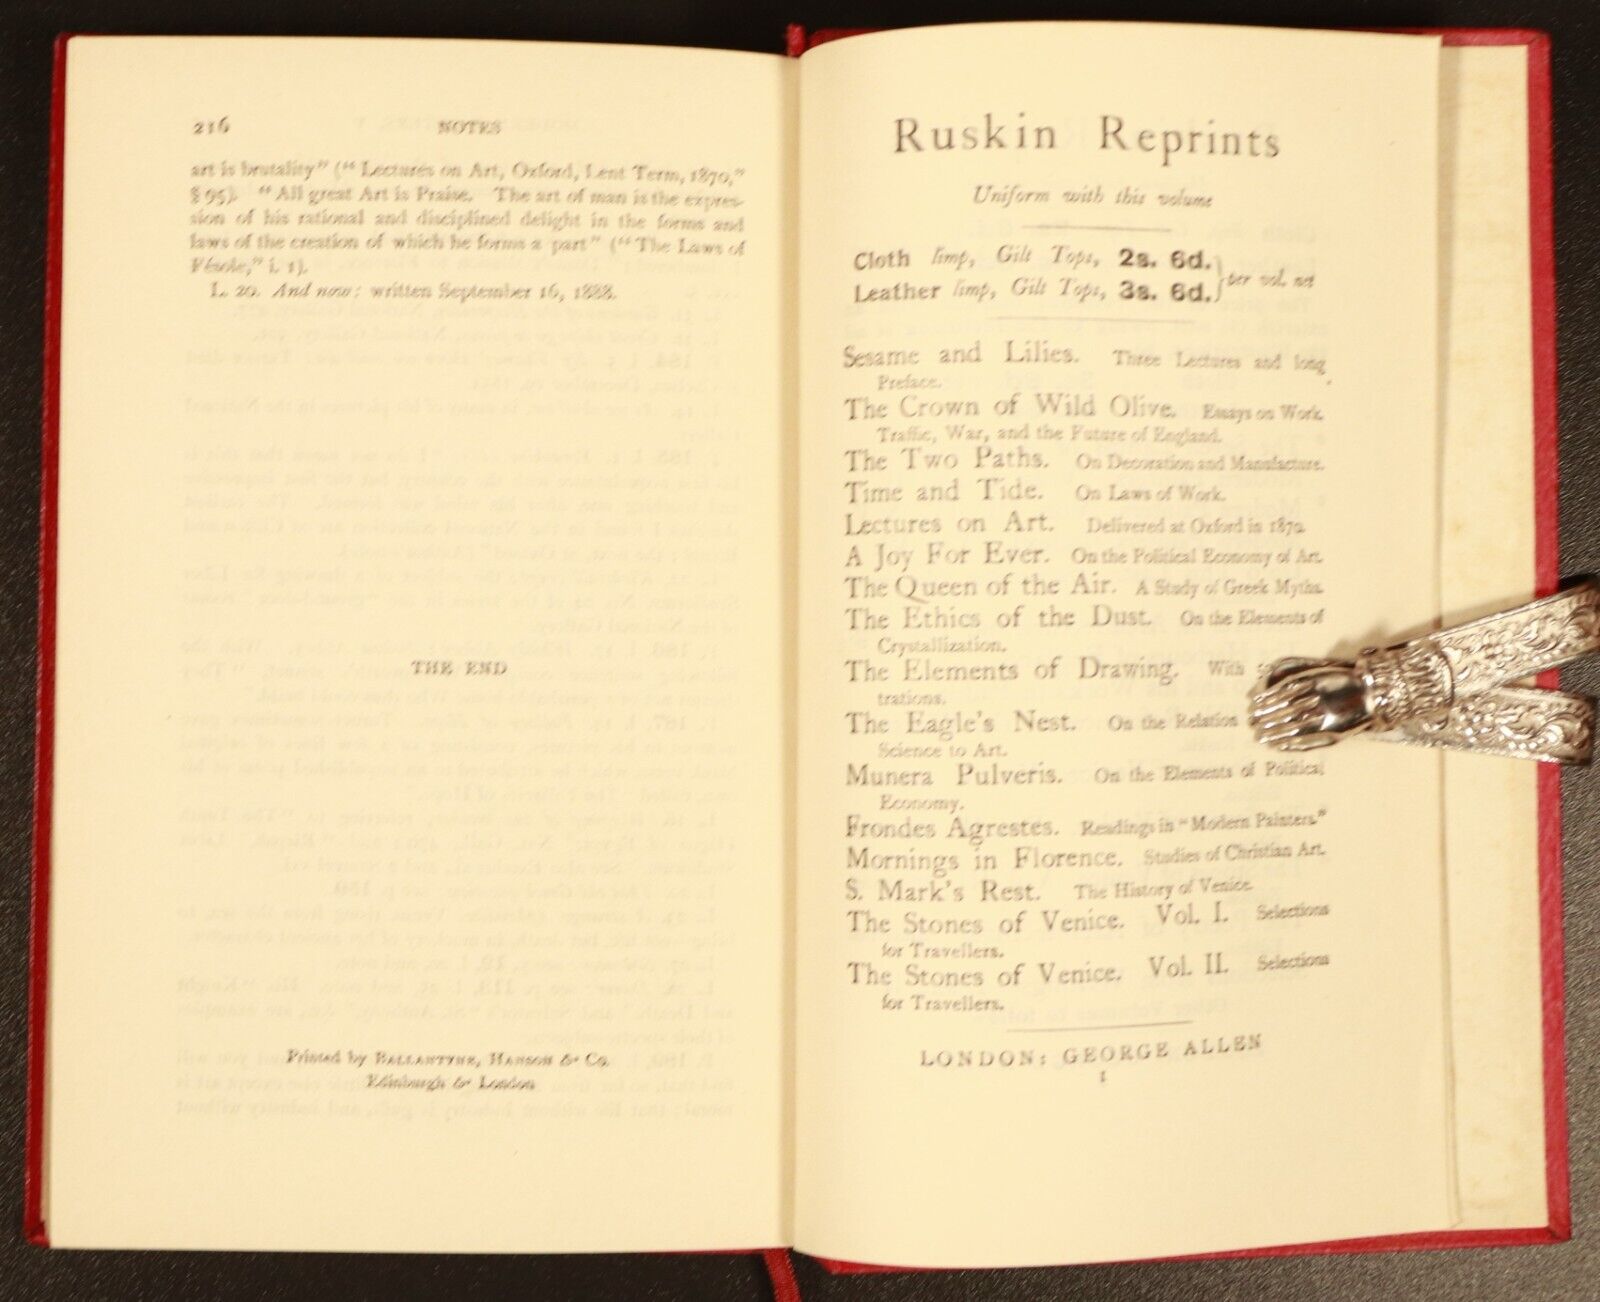 216 NOTES
art is brutality" ("Lectures on Art, Oxford, Lent Term, 1870,"
§ 95). "All great Art is Praise. The art of man is the expres-
sion of his rational and disciplined delight in the forms and
laws of the creation of which he forms a part" ("The Laws of
Fésole," i. 1).
L. 20. And now: written September 16, 1888.
THE END
Printed by BALLANTYNE, HANSON & Co.
Edinburgh & London
Ruskin Reprints
Uniform with this volume
Cloth limp, Gilt Tops, 2s. 6d.
Leather limp, Gilt Tops, 3s. 6d.
per vol. net
Sesame and Lilies. Three Lectures and long
Preface.
The Crown of Wild Olive. Essays on Work,
Traffic, War, and the Future of England.
The Two Paths. On Decoration and Manufacture.
Time and Tide. On Laws of Work.
Lectures on Art. Delivered at Oxford in 1870.
A Joy For Ever. On the Political Economy of Art.
The Queen of the Air. A Study of Greek Myths.
The Ethics of the Dust. On the Elements of
Crystallization.
The Elements of Drawing. With
trations.
The Eagle's Nest. On the Relation
Science to Art.
Munera Pulveris. On the Elements of Political
Economy.
Frondes Agrestes. Readings in "Modern Painters."
Mornings in Florence. Studies of Christian Art.
S. Mark's Rest. The History of Venice.
The Stones of Venice. Vol. I. Selections
for Travellers.
The Stones of Venice. Vol. II. Selections
for Travellers.
LONDON: GEORGE ALLEN
1